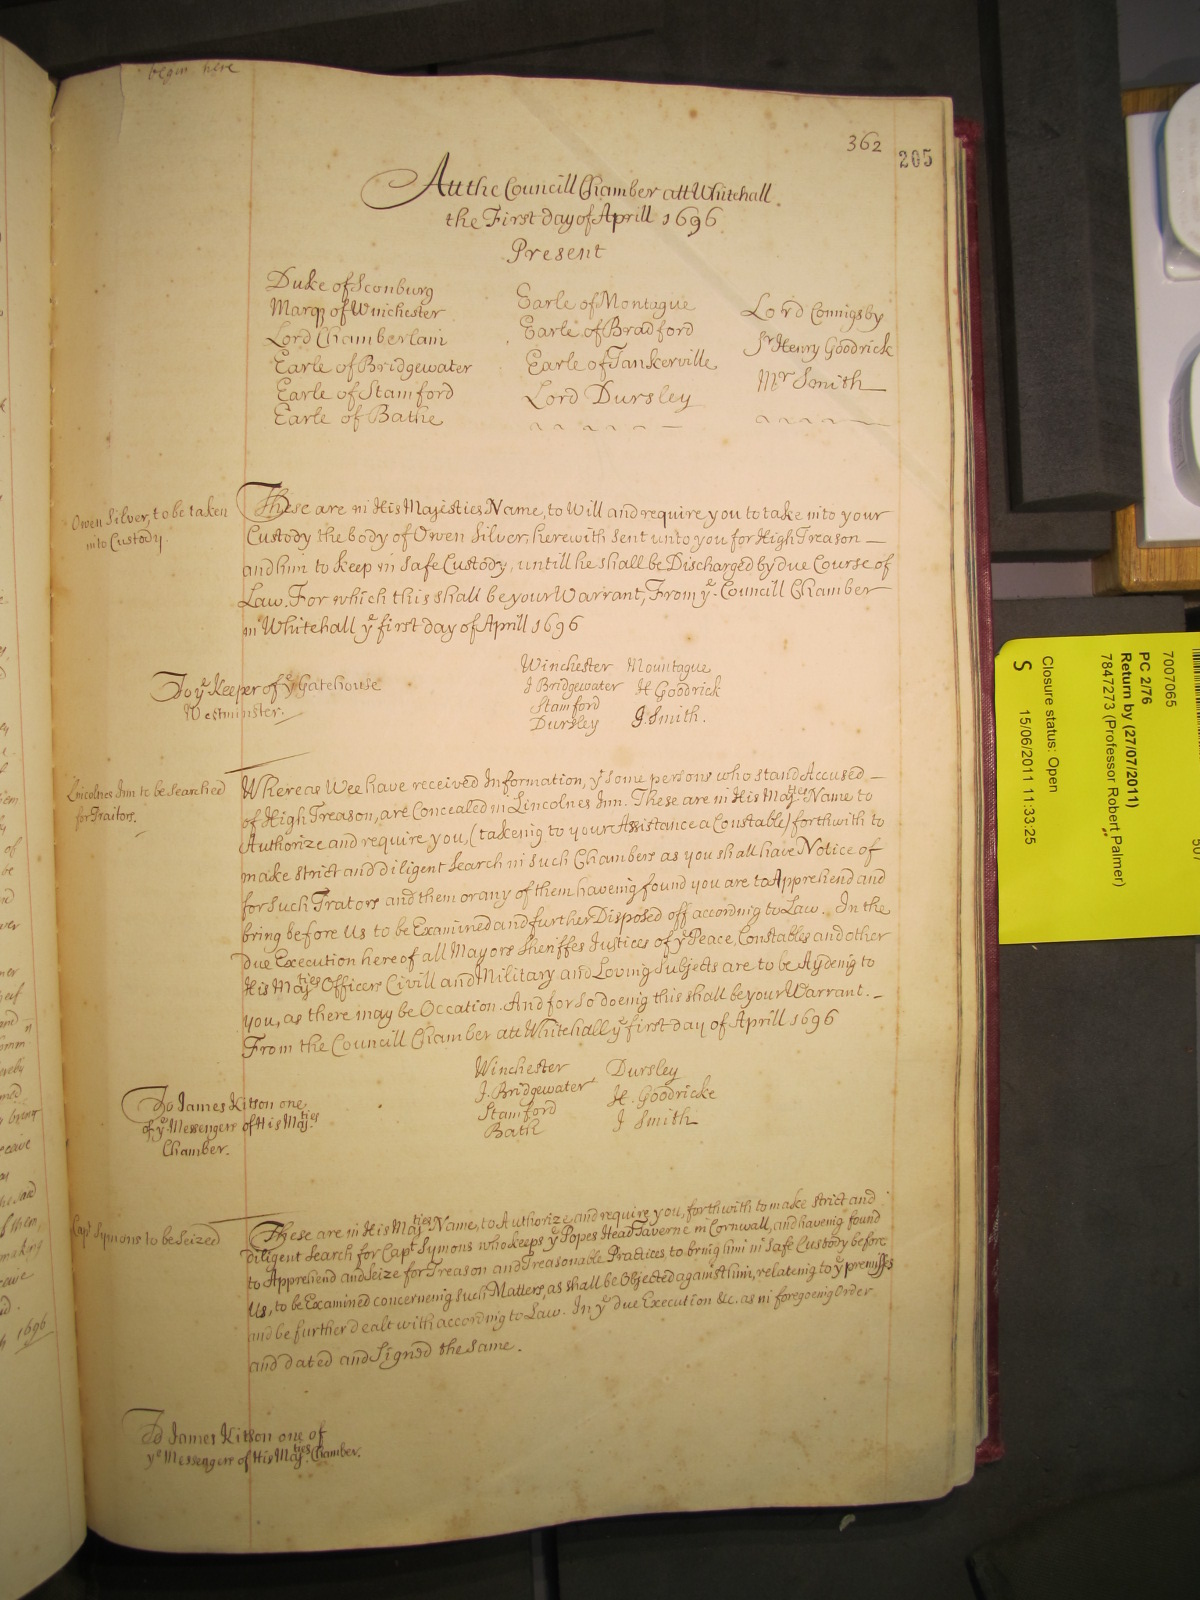 begin here
362
205
Att the Councill Chamber att Whitehall
the First day of Aprill 1696
Present
Duke of Sconburg
Marq of Winchester
Lord Chamberlain
Earle of Bridgewater
Earle of Stamford
Earle of Bathe
Earle of Montague
Earle of Bradford
Earle of Tankerville
Lord Dursley
Lord Connigsby
Sr Henry Goodrick
Mr Smith
Owen Silver, to be taken
into Custody.
These are in His Majesties Name, to Will and require you to take into your
Custody the body of Owen Silver, herewith sent unto you for High Treason
and him to keep in Safe Custody, untill he shall be Discharged by due Course of
Law. For which this shall be your Warrant, From ye Councill Chamber
in Whitehall ye first day of Aprill 1696
Winchester Mountague
J Bridgewater H Goodrick
Stamford
Dursley J. Smith.
To ye Keeper of ye Gatehouse
Westminster.
Lincolnes Inn to be Searched
for Traitors.
Whereas Wee have received Information, yt some persons who stand Accused
of High Treason, are Concealed in Lincolnes Inn. These are in His Majties Name to
Authorize and require you, (takeing to your Assistance a Constable) forthwith to
make strict and diligent Search in such Chambers as you shall have Notice of
for such Trators and them or any of them haveing found you are to Apprehend and
bring before Us to be Examined and further Disposed off according to Law. In the
due Execution hereof all Mayors Sheriffes Justices of ye Peace, Constables and other
His Majties Officers Civill and Military and Loving Subjects are to be Aydeing to
you, as there may be Occation. And for so doeing this shall be your Warrant.
From the Councill Chamber att Whitehall ye first day of Aprill 1696
Winchester Dursley
J. Bridgewater H. Goodricke
Stamford J Smith
Bath
To James Kitson one
of ye Messengers of His Majties
Chamber.
Capt Symons to be Seized
These are in His Majties Name, to Authorize and require you, forthwith to make strict and
diligent Search for Capt Symons who keeps ye Popes Head Taverne in Cornwall, and haveing found
to Apprehend and Seize for Treason and Treasonable Practices to bring him in Safe Custody before
Us, to be Examined concerneing such Matters, as shall be Objected against him, relateing to ye premisses
and be further dealt with according to Law. In ye due Execution &c. as in foregoeing Order
and dated and Signed the same.
To James Kitson one of
ye Messengers of His Majties Chamber.
7007065
PC 2/76
Return by (27/07/2011)
7847273 (Professor Robert Palmer)
Closure status: Open
S 15/06/2011 11:33:25